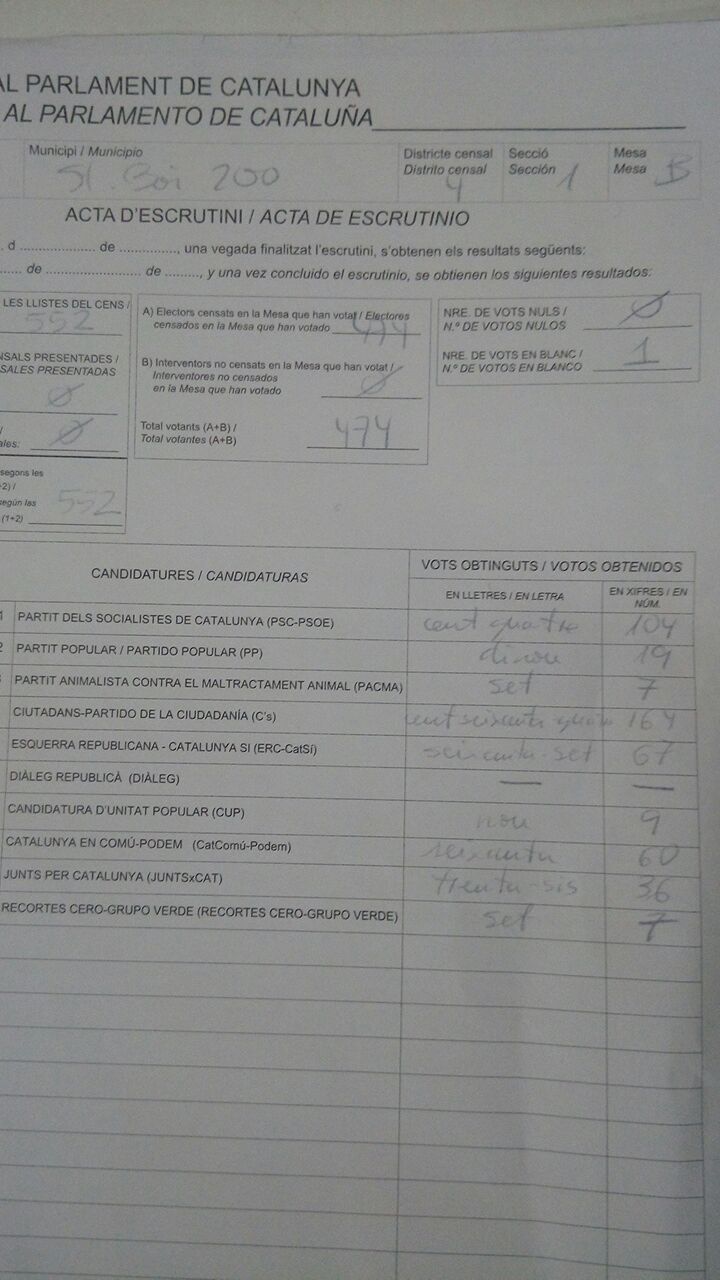 AL PARLAMENT DE CATALUNYA
AL PARLAMENTO DE CATALUÑA
Municipi / Municipio
St. Boi 200
Districte censal
Distrito censal 4
Secció
Sección 1
Mesa
Mesa B
ACTA D'ESCRUTINI / ACTA DE ESCRUTINIO
d .................... de ..............., una vegada finalitzat l'escrutini, s'obtenen els resultats següents:
...... de ......................... de ........., y una vez concluido el escrutinio, se obtienen los siguientes resultados:
LES LLISTES DEL CENS /
552
NSALS PRESENTADES /
SALES PRESENTADAS
Ø
ales: Ø
segons les
+2) /
según las
(1+2) 552
A) Electors censats en la Mesa que han votat / Electores
censados en la Mesa que han votado 474
B) Interventors no censats en la Mesa que han votat /
Interventores no censados
en la Mesa que han votado Ø
Total votants (A+B) /
Total votantes (A+B) 474
NRE. DE VOTS NULS /
N.º DE VOTOS NULOS Ø
NRE. DE VOTS EN BLANC /
N.º DE VOTOS EN BLANCO 1
CANDIDATURES / CANDIDATURAS
VOTS OBTINGUTS / VOTOS OBTENIDOS
EN LLETRES / EN LETRA
EN XIFRES / EN
NÚM.
1 PARTIT DELS SOCIALISTES DE CATALUNYA (PSC-PSOE) cent quatre 104
2 PARTIT POPULAR / PARTIDO POPULAR (PP) dinou 19
PARTIT ANIMALISTA CONTRA EL MALTRACTAMENT ANIMAL (PACMA) set 7
CIUTADANS-PARTIDO DE LA CIUDADANÍA (C's) cent seixanta quatre 164
ESQUERRA REPUBLICANA - CATALUNYA SI (ERC-CatSí) seixanta-set 67
DIÀLEG REPUBLICÀ (DIÀLEG) — —
CANDIDATURA D'UNITAT POPULAR (CUP) nou 9
CATALUNYA EN COMÚ-PODEM (CatComú-Podem) seixanta 60
JUNTS PER CATALUNYA (JUNTSxCAT) trenta-sis 36
RECORTES CERO-GRUPO VERDE (RECORTES CERO-GRUPO VERDE) set 7